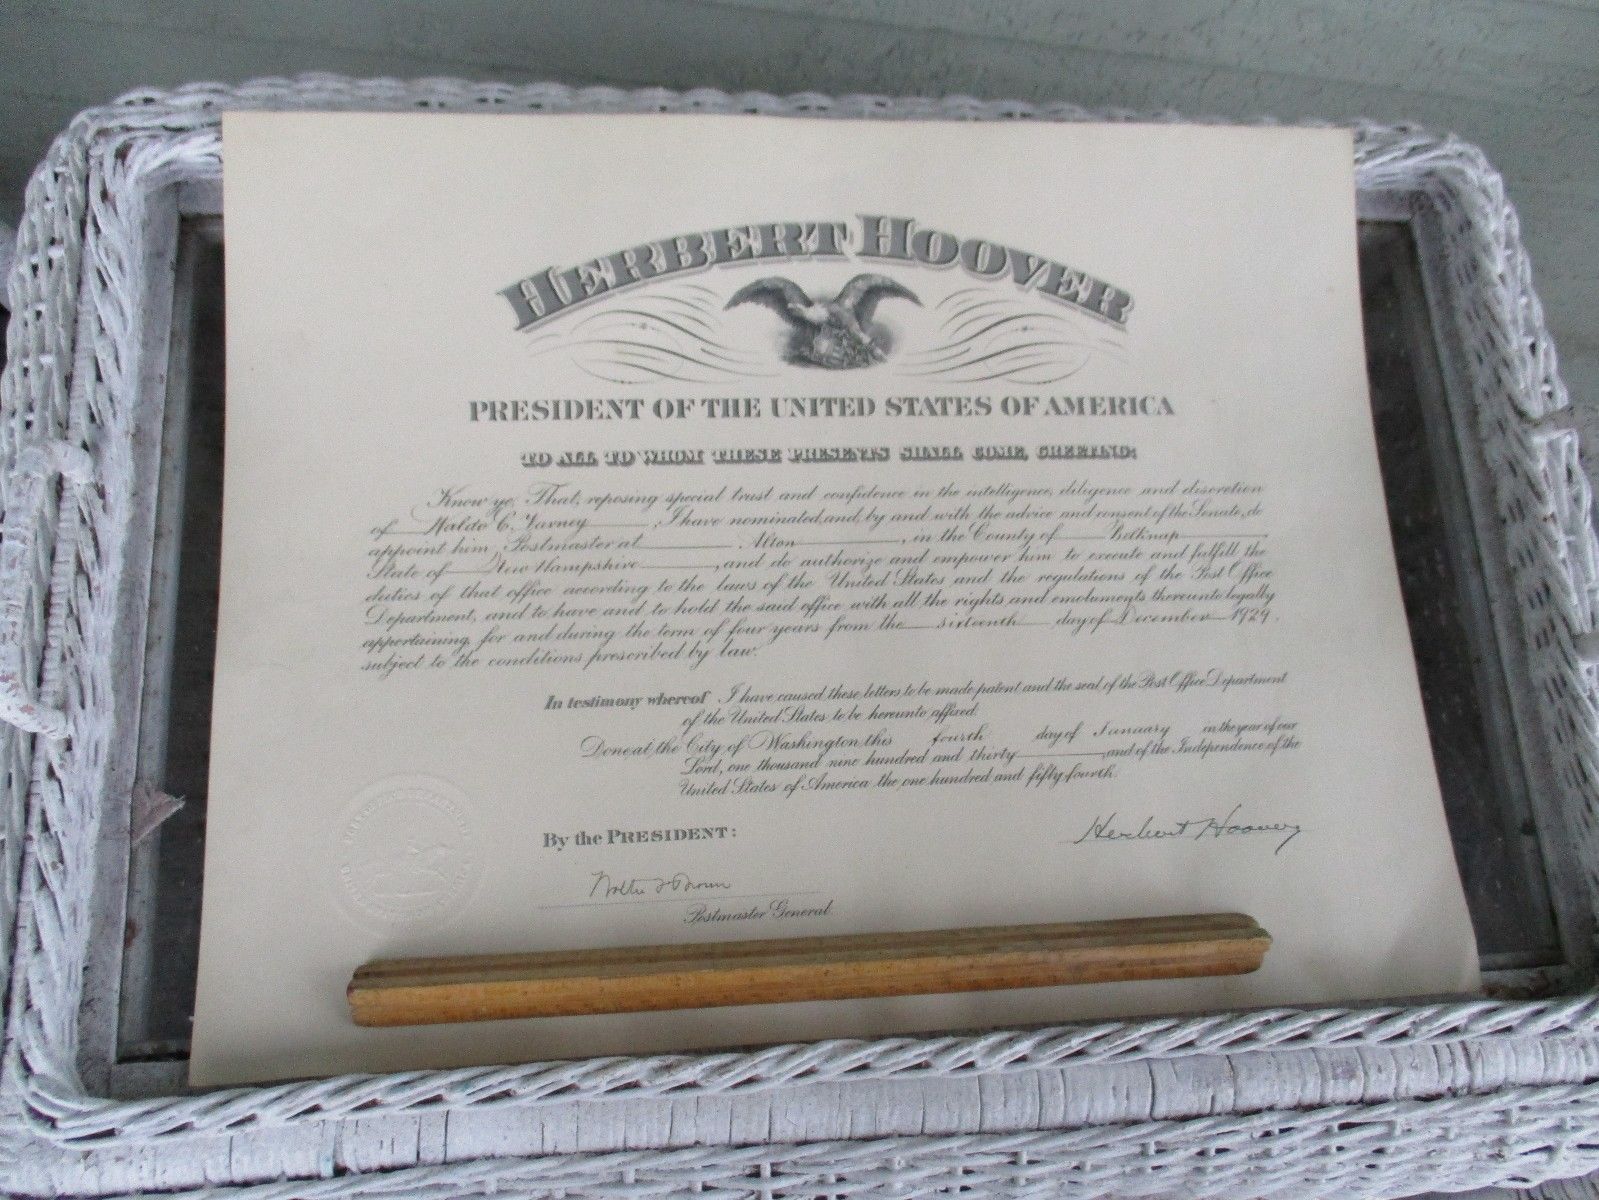 HERBERT HOOVER
PRESIDENT OF THE UNITED STATES OF AMERICA
TO ALL TO WHOM THESE PRESENTS SHALL COME, GREETING:
Know ye, That, reposing special trust and confidence in the intelligence, diligence and discretion
of Waldo C. Varney, I have nominated, and, by and with the advice and consent of the Senate, do
appoint him, Postmaster at Alton, in the County of Belknap
State of New Hampshire, and do authorize and empower him to execute and fulfill the
duties of that office according to the laws of the United States and the regulations of the Post Office
Department, and to have and to hold the said office with all the rights and emoluments thereunto legally
appertaining, for and during the term of four years from the sixteenth day of December 1929,
subject to the conditions prescribed by law.
In testimony whereof I have caused these letters to be made patent and the seal of the Post Office Department
of the United States to be hereunto affixed.
Done at the City of Washington this fourth day of January in the year of our
Lord, one thousand nine hundred and thirty, and of the Independence of the
United States of America the one hundred and fifty-fourth.
By the PRESIDENT:
Herbert Hoover
Walter F Brown
Postmaster General.